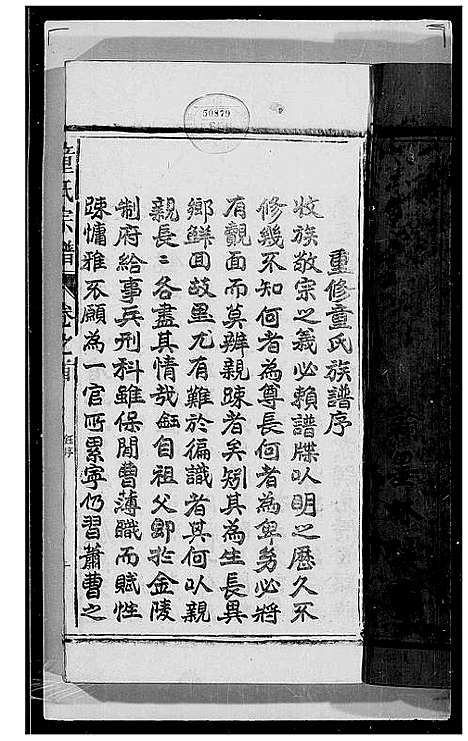 50879
重修童氏族譜序
收族敬宗之義必賴譜牒以明之歷久不
修幾不知何者為尊長何者為卑㓜必將
有覿面而莫辦親疎者矣矧其為生長異
鄉鮮囬故里尤有難於徧識者其何以親
親長〻各盡其情哉鈺自祖父卽扵金陵
制府給事兵刑科雖保閒曹薄職而賦性
踈慵雅不願為一官所累寧仍習蕭曹之
童氏宗譜 卷之首 鈺序 一